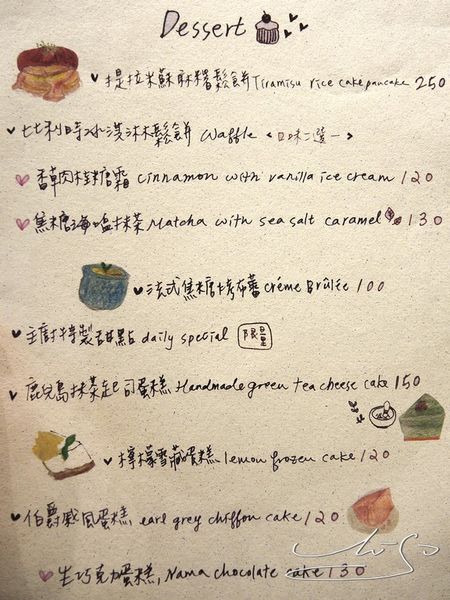 Dessert
提拉米蘇麻糬鬆餅 Tiramisu rice cake pancake 250
比利時冰淇淋鬆餅 Waffle <口味二選一>
香草肉桂糖霜 cinnamon with vanilla ice cream 120
焦糖海鹽抹茶 Matcha with sea salt caramel 130
法式焦糖烤布蕾 créme Brûlée 100
主廚特製甜點 daily special 限量
鹿兒島抹茶起司蛋糕 Handmade green tea cheese cake 150
檸檬雪藏蛋糕 lemon frozen cake 120
伯爵戚風蛋糕 earl grey chiffon cake 120
生巧克力蛋糕, Nama chocolate cake 130